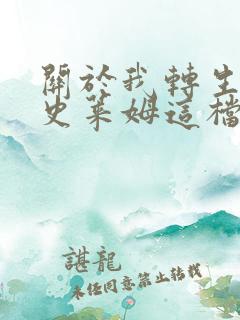 關於我轉生
史萊姆這檔
諶龍
未经同意禁止转载